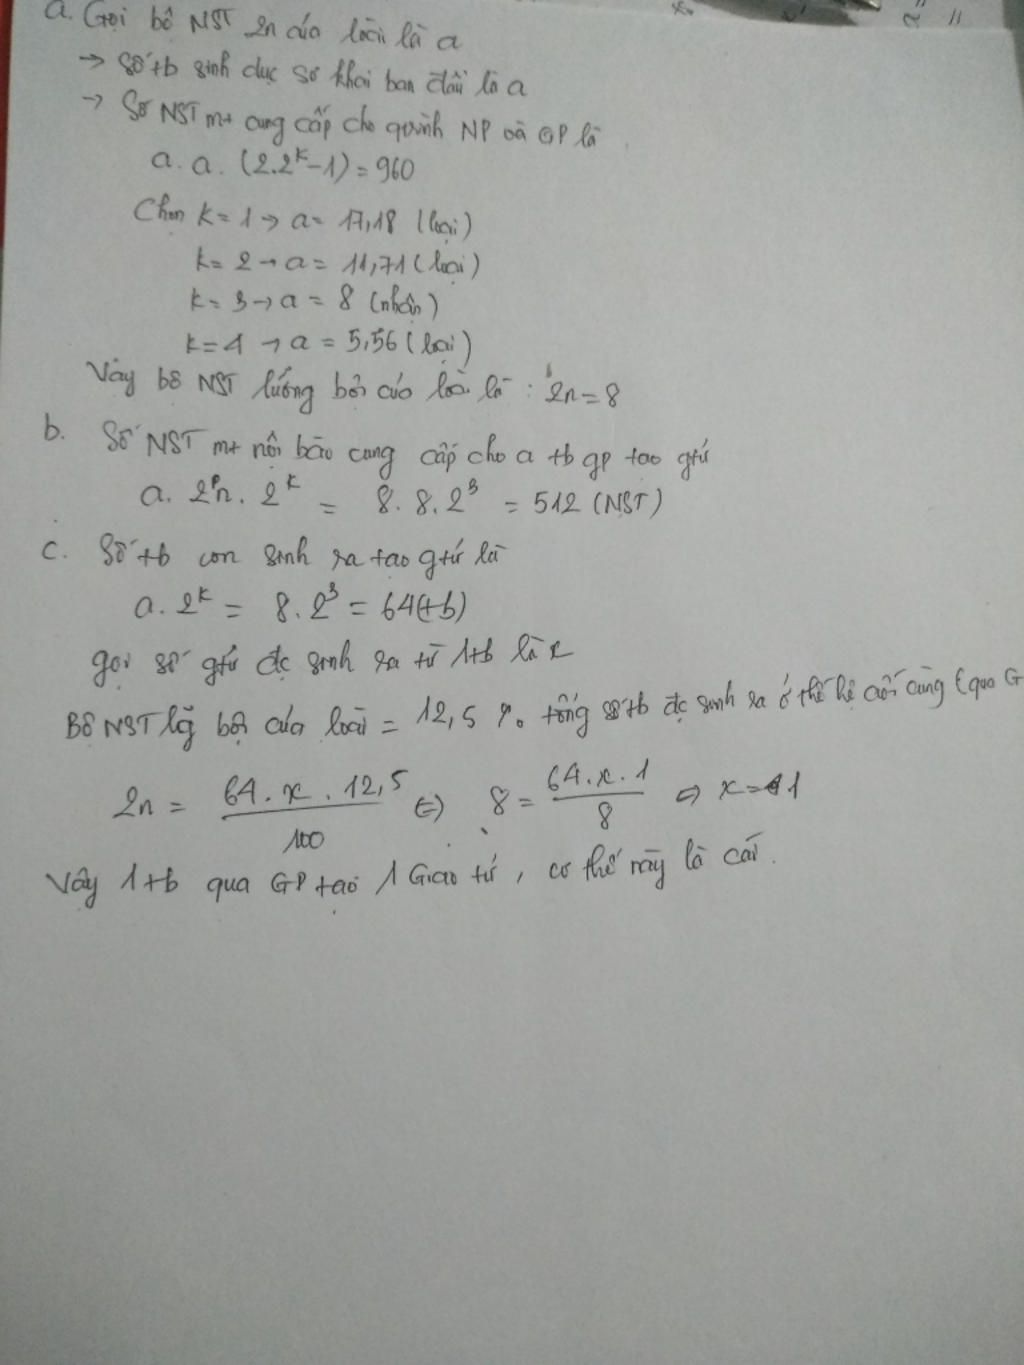 a. Gọi bộ NST 2n của loài là a
→ Số tb sinh dục sơ khai ban đầu là a
→ Số NST mt cung cấp cho quá trình NP và GP là
a. a. (2.2^k - 1) = 960
Chọn k = 1 → a = 17,18 (loại)
k = 2 → a = 11,71 (loại)
k = 3 → a = 8 (nhận)
k = 4 → a = 5,56 (loại)
Vậy bộ NST lưỡng bội của loài là : 2n = 8
b. Số NST mt nội bào cung cấp cho a tb gp tạo gtử
a. 2n. 2^k = 8. 8. 2^3 = 512 (NST)
c. Số tb con sinh ra tạo gtử là
a. 2^k = 8. 2^3 = 64 (tb)
gọi số gtử đc sinh ra từ 1tb là x
Bộ NST lg bội của loài = 12,5 % tổng số tb đc sinh ra ở thế hệ cuối cùng (qua G
2n = 64. x . 12,5 / 100 ⇔ 8 = 64. x . 1 / 8 ⇔ x = 1
Vậy 1tb qua GP tạo 1 Giao tử , cơ thể này là cái.